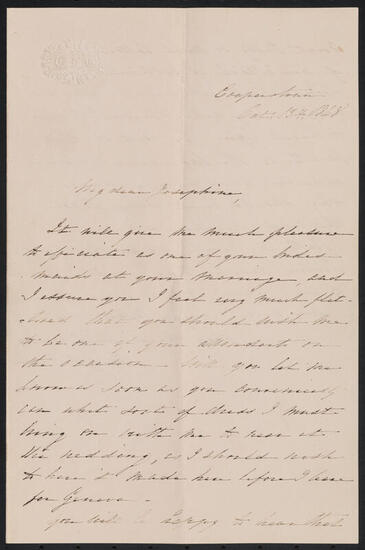 Cooperstown
Oct. 13th, 1868
My dear Josephine,
It will give me much pleasure
to officiate as one of your brides
maids at your marriage, and
I assure you I feel very much flat-
tered that you should wish me
to be one of your attendants on
the occasion - Will you let me
know as soon as you conveniently
can what sort of dress I must
bring on with me to wear at
the wedding, as I should wish
to have it made here before I leave
for Geneva -
You will be happy to hear that